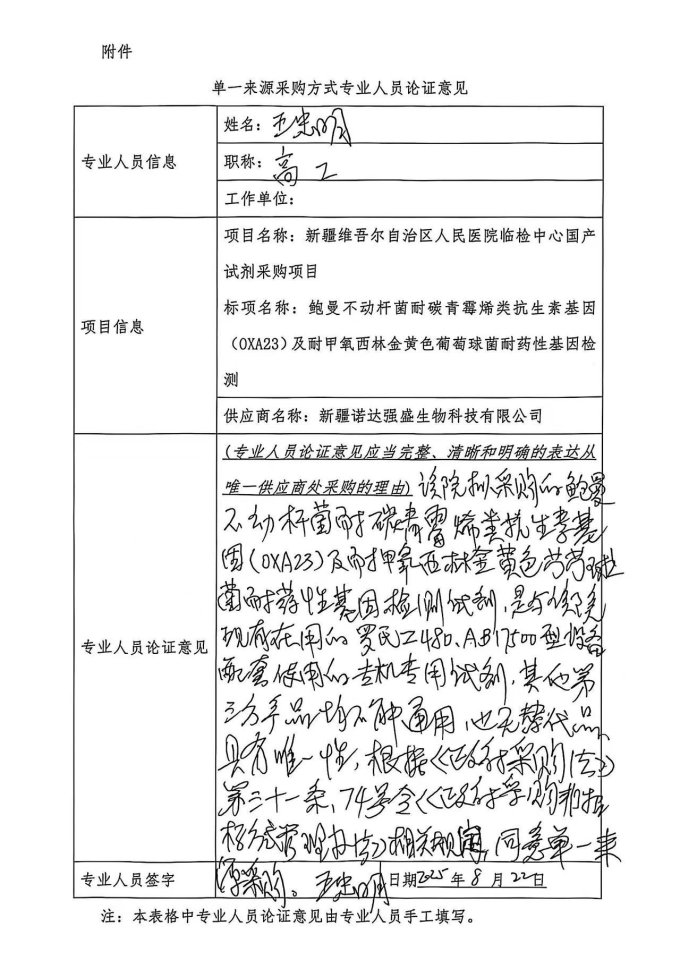 附件
单一来源采购方式专业人员论证意见
专业人员信息
姓名：王忠明
职称：高工
工作单位：
项目信息
项目名称：新疆维吾尔自治区人民医院临检中心国产
试剂采购项目
标项名称：鲍曼不动杆菌耐碳青霉烯类抗生素基因
（OXA23）及耐甲氧西林金黄色葡萄球菌耐药性基因检
测
供应商名称：新疆诺达强盛生物科技有限公司
专业人员论证意见
(专业人员论证意见应当完整、清晰和明确的表达从
唯一供应商处采购的理由) 该院拟采购的鲍曼
不动杆菌耐碳青霉烯类抗生素基
因(OXA23)及耐甲氧西林金黄色葡萄球
菌耐药性基因检测试剂，是与该院
现有在用的罗氏Z480、ABI7500型设备
配套使用的专机专用试剂，其他第
三方产品均不能通用，也无替代品，
具有唯一性，根据《政府采购法》
第三十一条，74号令《政府采购非招
标方式管理办法》相关规定，同意单一来
源采购。
专业人员签字
王忠明
日期2025年8月22日
注：本表格中专业人员论证意见由专业人员手工填写。